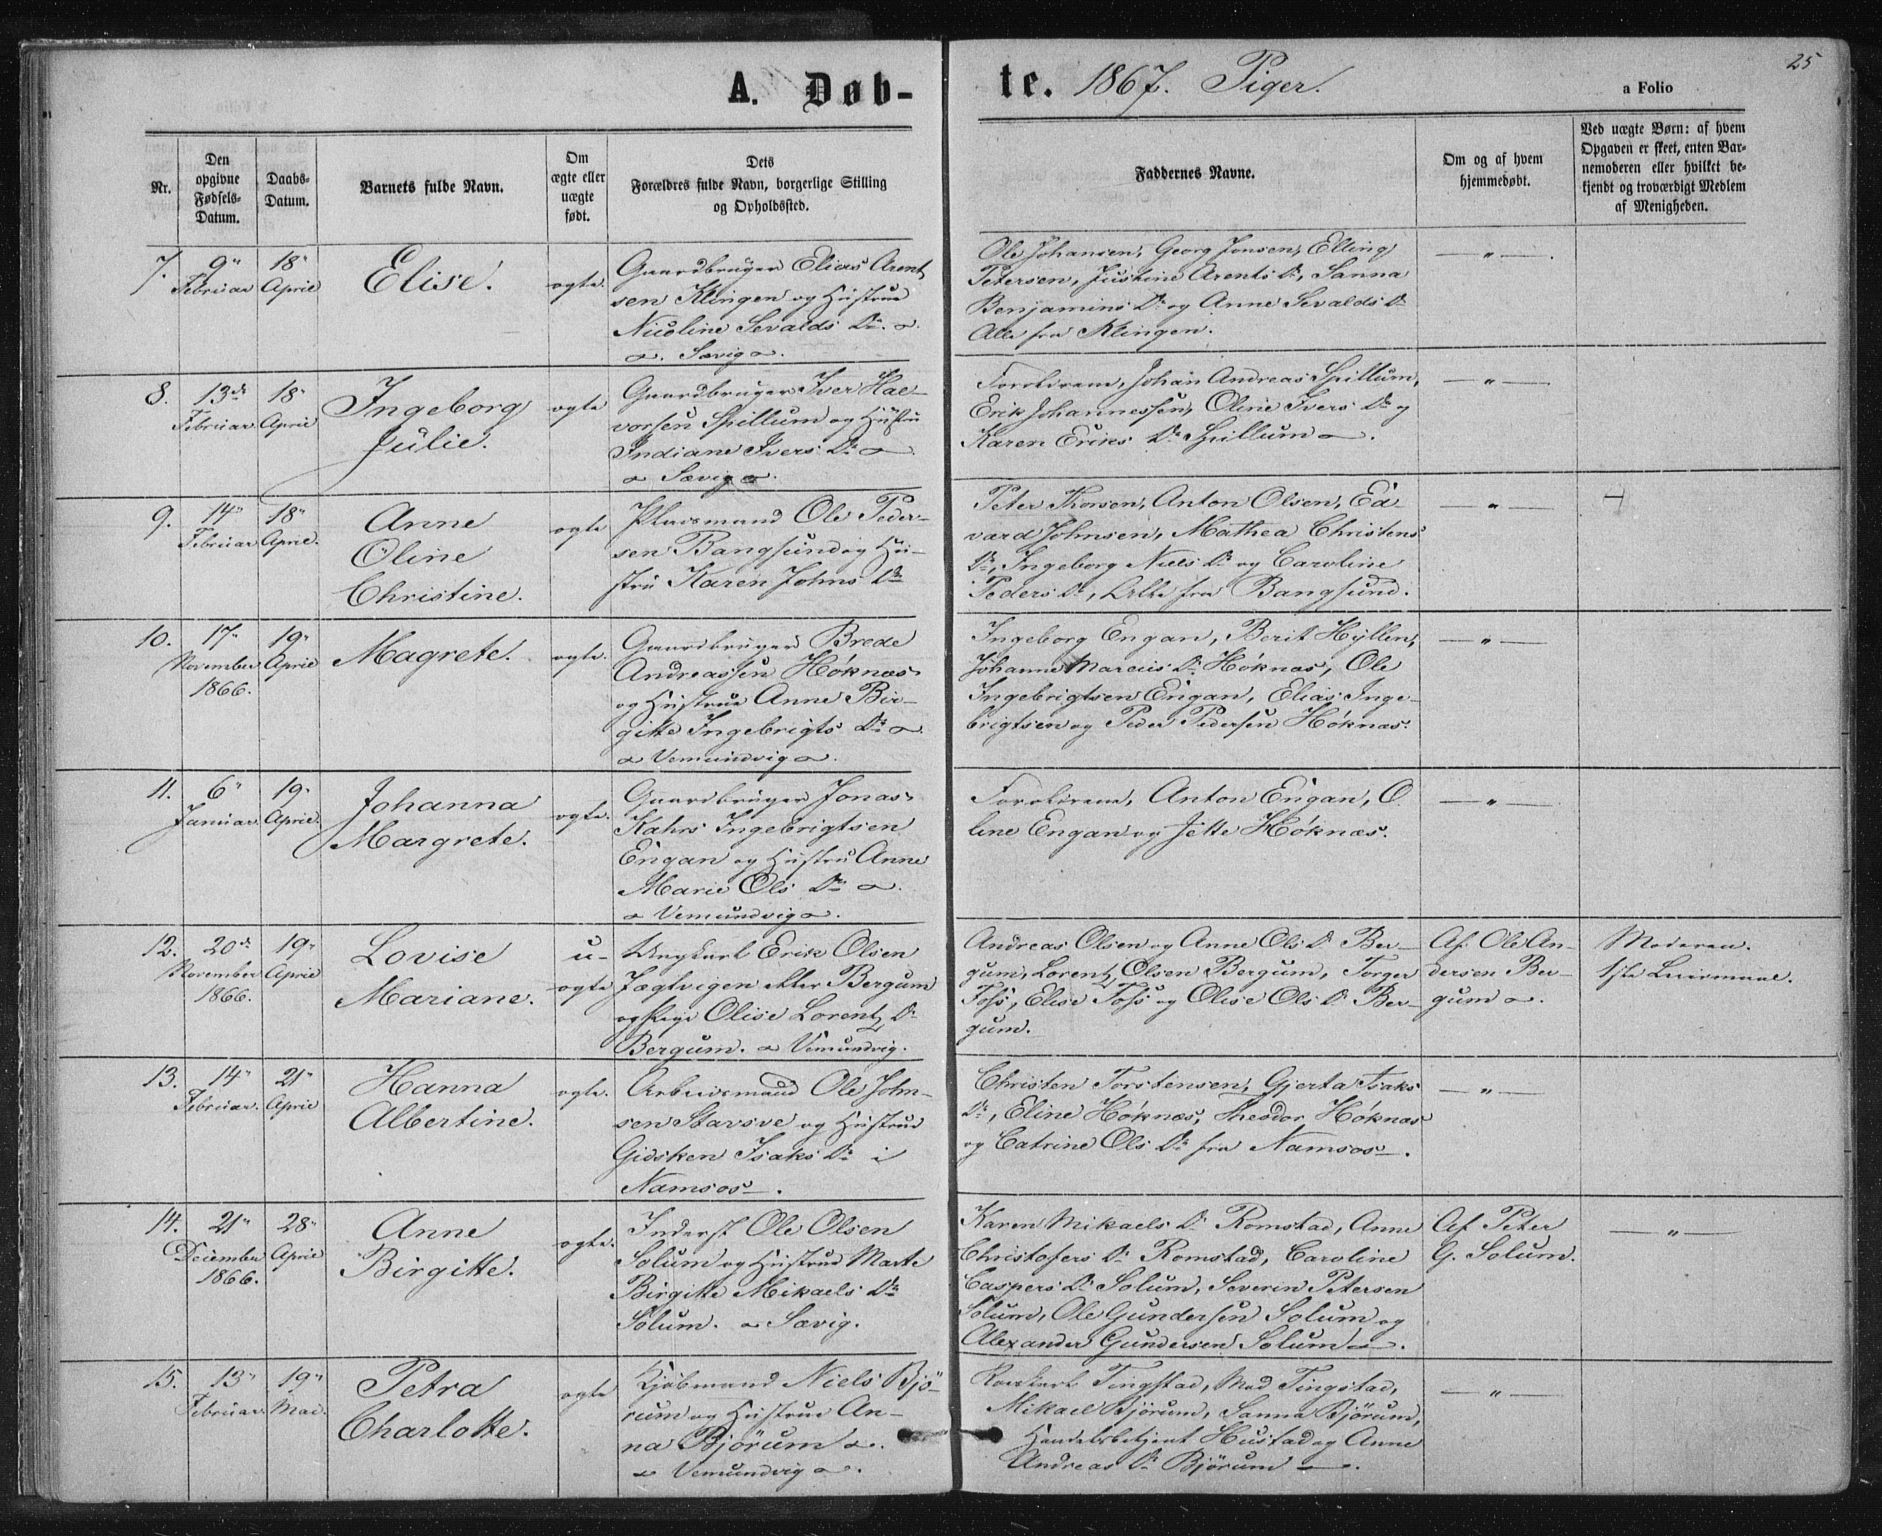 A. Døb-
te. 1867. Piger.
a Folio
25
Nr.
Den
opgivne
Fødsels-
Datum.
Daabs-
Datum.
Barnets fulde Navn.
Om
ægte eller
uægte
født.
Dets
Forældres fulde Navn, borgerlige Stilling
og Opholdssted.
Faddernes Navne.
Om og af hvem
hjemmedøbt.
Ved uægte Børn: af hvem
Opgaven er skeet, enten Bar-
nemoderen eller hvilket be-
kjendt og troværdigt Medlem
af Menigheden.
7.
9"
Februar
18"
April
Elise.
ægte.
Gaardbruger Elias Arent
sen Klingen og Hustrue
Nicoline Sevalds Dr.
Sævig.
Ole Johansen, Georg Jonsen, Elling
Petersen, Justine Arents Dr, Sanna
Benjamins Dr og Anne Sevalds Dr
Alle fra Klingen.
— " —
8.
13de
Februar
18"
April
Ingeborg
Julie.
ægte
Gaardbruger Iver Hal-
vorsen Spillum og Hustru
Indiane Ivers Dr
Sævig.
Forældrene, Johan Andreas Spillum,
Erik Johannessen, Oline Ivers Dr og
Karen Eriks Dr Spillum.
— " —
9.
14"
Februar
18"
April.
Anne
Oline
Christine.
ægte
Pladsmand Ole Peder-
sen Bangsund og Hu-
stru Karen Johns Dr
Peter Korsen, Anton Olsen, Ed-
vard Johnsen, Mathea Christens
Dr, Ingeborg Niels Dr og Caroline
Peders Dr, Alle fra Bangsund.
— " —
10.
17"
November
1866.
19"
April
Magrete.
ægte.
Gaardbruger Brede
Andreassen Høknæs
og Hustrue Anne Bir-
gitte Ingebrigts Dr
Vemundvig.
Ingeborg Engan, Berit Hyllen,
Johanna Marcus Dr Høknæs, Ole
Ingebrigtsen Engan, Elias Inge-
brigtsen og Peder Pedersen Høknæs.
— " —
11.
6"
Januar.
19"
April.
Johanna
Margrete.
ægte.
Gaardbruger Jonas
Kahrs Ingebrigtsen
Engan og Hustru Anne
Marie Ols Dr
Vemundvig.
Forældrene, Anton Engan, O
line Engan og Jette Høknæs.
— " —
12.
20de
November
1866.
19"
April
Lovise
Mariane.
u-
ægte
Ungkarl Erik Olsen
Jægtvigen eller Bergum
og Pige Olise Lorentz Dr
Bergum. Vemundvig.
Andreas Olsen og Anne Ols Dr Ber-
gum, Lorentz Olsen Bergum, Torger
Foss, Elise Foss og Olise Ols Dr Ber-
gum.
Af Ole An-
dersen Ber-
gum.
Moderen.
1ste Leiermaal.
13.
14"
Februar.
21"
April
Hanna
Albertine.
ægte.
Arbeidsmand Ole John-
sen Stavsve og Hustrue
Gidsken Isaks Dr i
Namsos.
Christen Torstensen, Gjerta Isaks
Dr, Eline Høknæs, Theodor Høknæs
og Catrine Ols Dr fra Namsos.
— " —
14.
21"
December
1866.
28"
April
Anne
Birgitte.
ægte.
Inderst Ole Olsen
Solum og Hustrue Marte
Birgitte Mikaels Dr
Solum. Sævig.
Karen Mikaels Dr Romstad, Anne
Christofers Dr Romstad, Caroline
Caspers Dr Solum, Severin Petersen
Solum, Ole Gundersen Solum og
Alexander Gundersen Solum.
Af Peter
G. Solum.
— " —
15.
13"
Februar
19"
Mai.
Petra
Charlotte.
ægte
Kjøbmand Niels Bjø-
rum og Hustrue An-
na Bjørum.
Vemundvig.
Tingstad, Mad Tingstad,
Mikael Bjørum, Sanna Bjørum,
Handelsbetjent Hustad og Anne
Andreas Dr Bjørum.
— " —